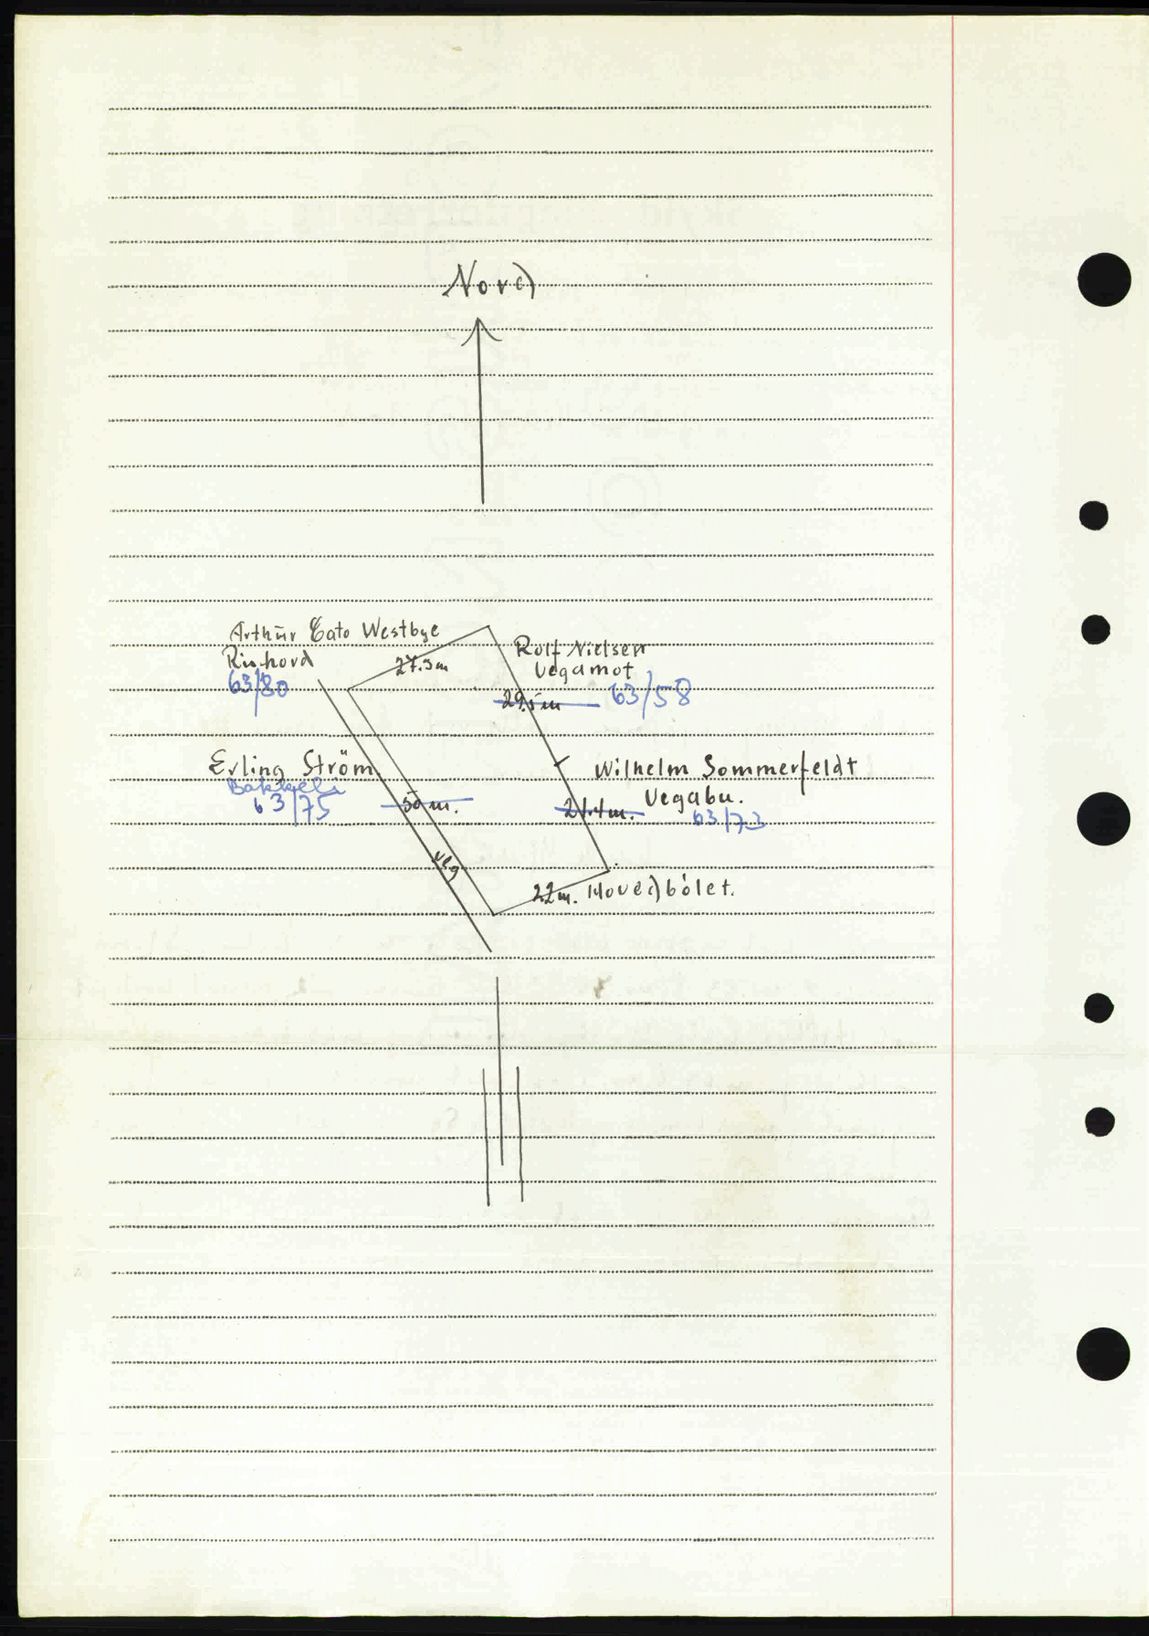 Nord
Arthur Cato Westbye
63/80
27.5m
Rolf Nielsen
Vegamot
29.5 m 63/58
Erling Ström
63/75
50 m.
Wilhelm Sommerfeldt
Vegabu.
21.4 m. 63/73
veg
22 m. Hovedbølet.